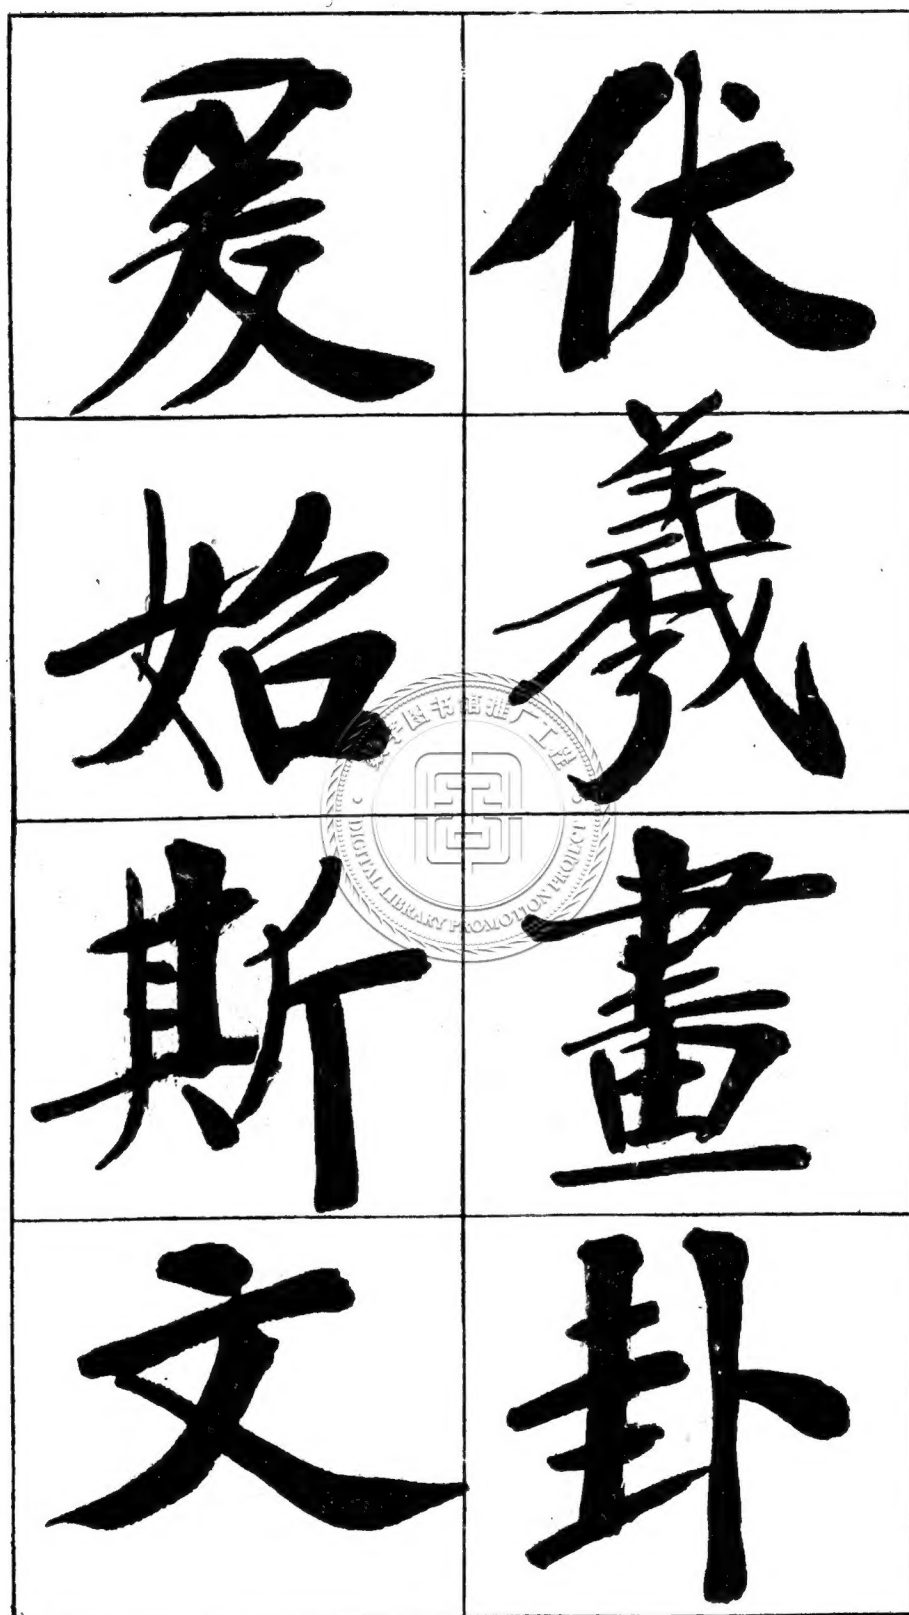 伏羲畫卦
爰始斯文
数字图书馆推广工程
DIGITAL LIBRARY PROMOTION PROJECT